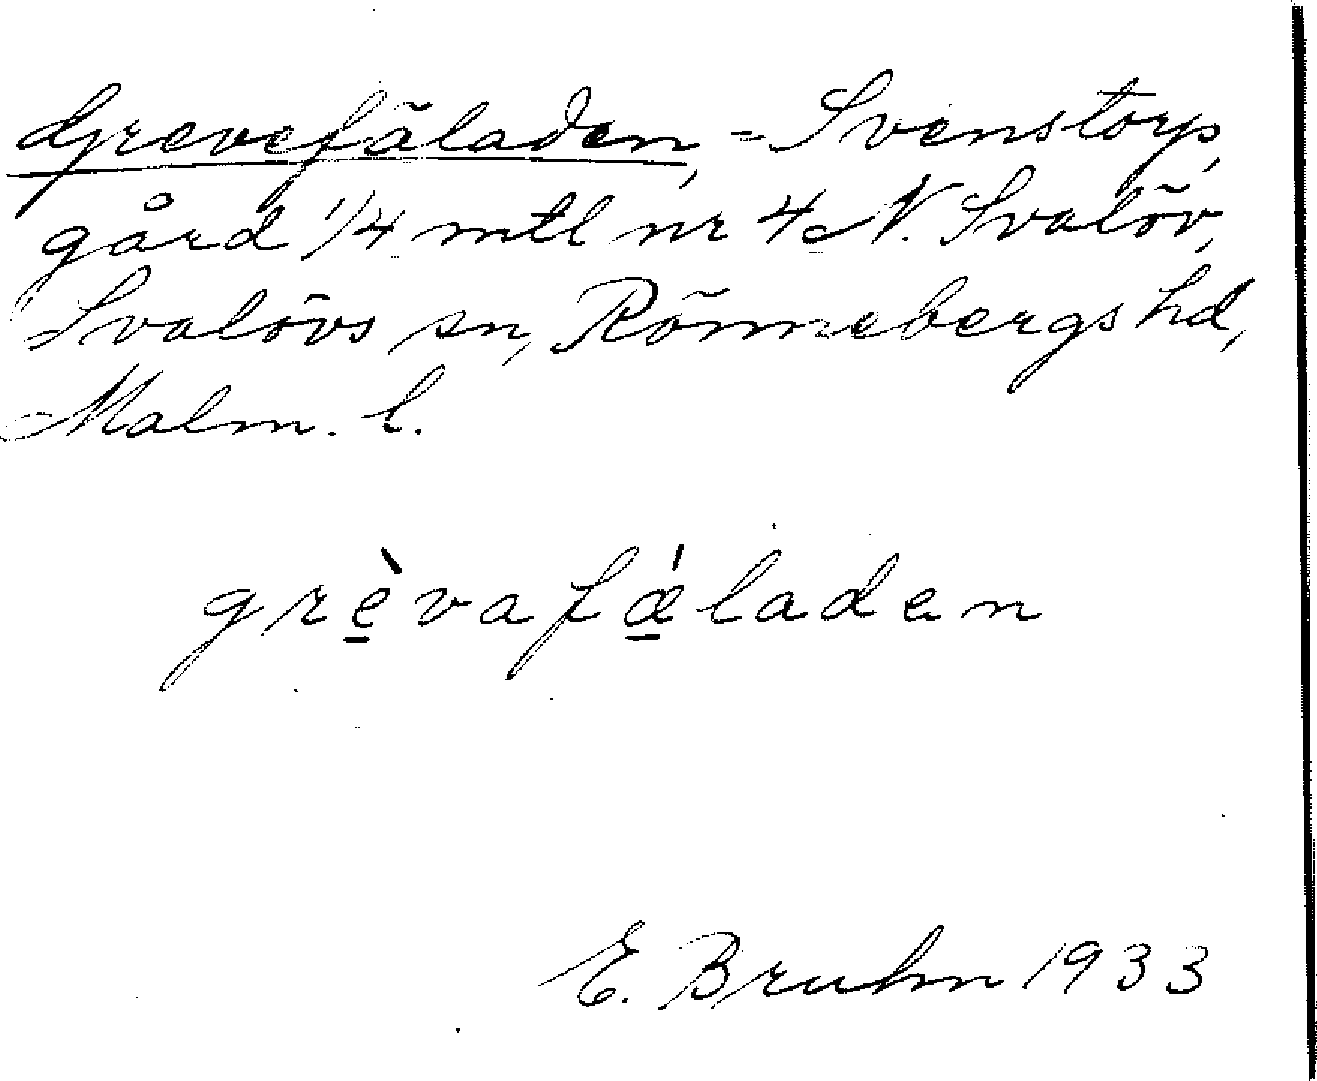 Grevefäladen, = Svenstorp,
gård 1/4 mtl nr 4 N. Svalöv,
Svalövs sn, Rönnebergs hd,
Malm. l.
grèvafǽladen
E. Bruhn 1933